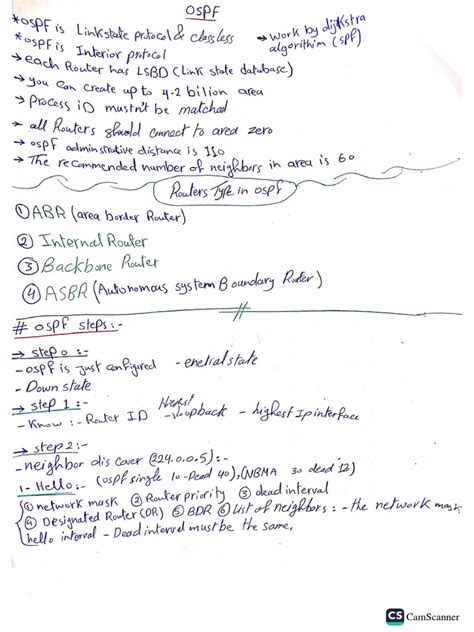 OSPF
*OSPF is Link state protocol & classless → work by dijkstra
algorithim (SPF)
*OSPF is Interior protocol
→ each Router has LSBD (Link state database)
→ you can create up to 4.2 bilion area
→ Process iD mustn't be matched
→ all Routers should connect to area zero
→ ospf adminstrative distance is 110
→ The recommended number of neighbors in area is 60
Routers Type in ospf
① ABR (area border Router)
② Internal Router
③ Backbone Router
④ ASBR (Autonomous system Boundary Router)
# ospf steps:-
→ step 0 :-
- ospf is just configured - enetial state
- Down state
→ step 1 :-
- Know :- Router ID - loopback - highest Ip interface
→ step 2:-
- neighbor dis cover (224.0.0.5):-
1- Hello:- (ospf single 10-Dead 40), (NBMA 30 dead 12)
① network mask ② Router priority ③ dead interval
④ Designated Router (DR) ⑤ BDR ⑥ list of neighbors :- the network mask,
hello interval - Dead interval must be the same,
CS CamScanner